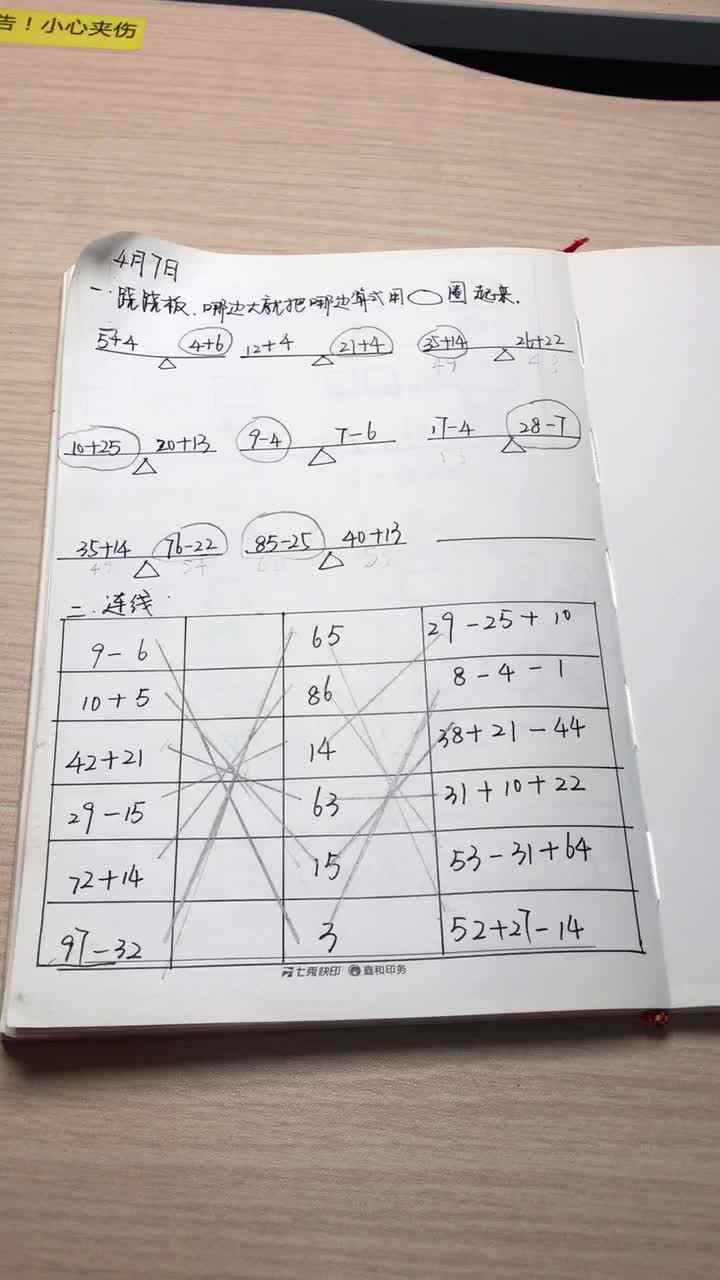 告！小心夹伤
4月7日
一.跷跷板.哪边大就把哪边算式用○圈起来.
5+4 4+6 12+4 21+4 35+14 26+22
49 48
10+25 20+13 9-4 7-6 17-4 28-7
13
35+14 76-22 85-25 40+13
49 54 60 53
二.连线.
9-6 65 29-25+10
10+5 86 8-4-1
42+21 14 38+21-44
29-15 63 31+10+22
72+14 15 53-31+64
97-32 3 52+27-14
七秀快印 鑫和印务